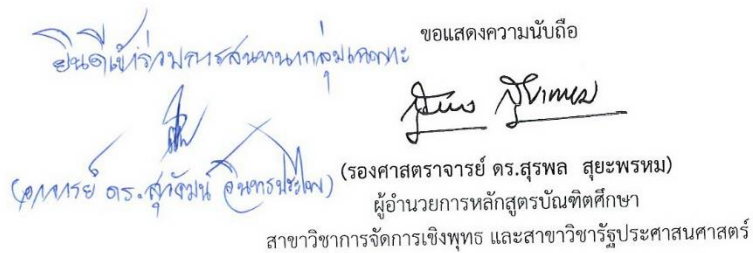 ขอแสดงความนับถือ
ยินดีเข้าร่วมการสนทนากลุ่มเฉพาะ
(อาจารย์ ดร.สุภัฒน์ อินทรประไพ)
(รองศาสตราจารย์ ดร.สุรพล สุยะพรหม)
ผู้อำนวยการหลักสูตรบัณฑิตศึกษา
สาขาวิชาการจัดการเชิงพุทธ และสาขาวิชารัฐประศาสนศาสตร์